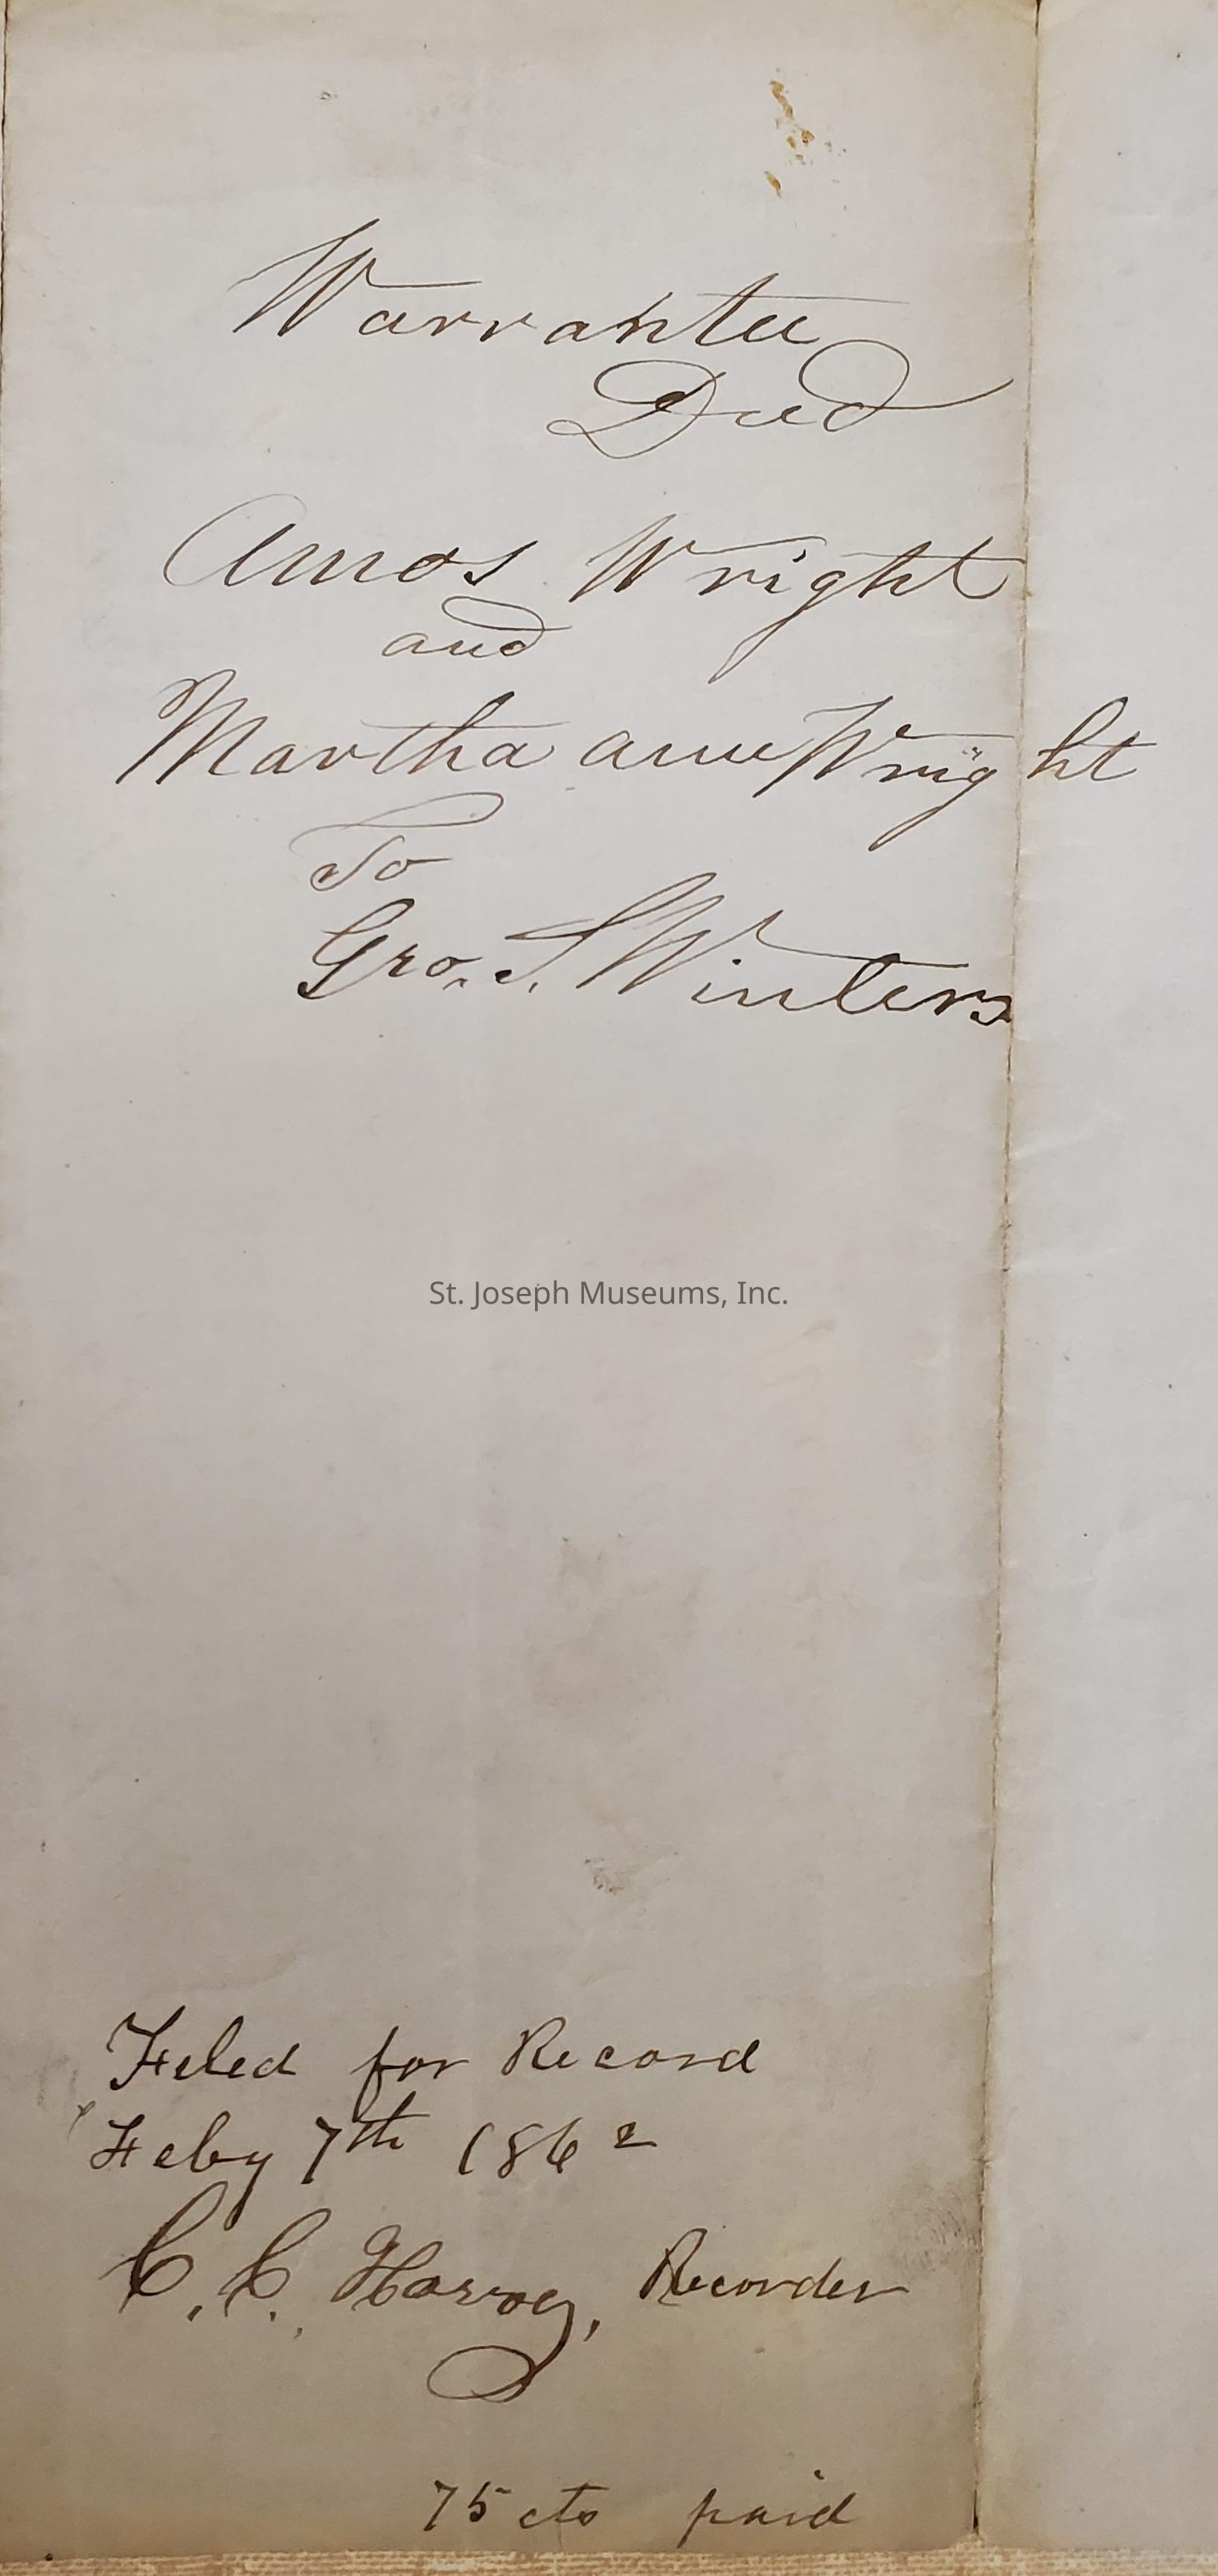 Warrantee
Deed
Amos Wright
and
Martha ann Wright
To
Geo. S. Winters
St. Joseph Museums, Inc.
Filed for Record
Feby 7th 1862
C. C. Harvey, Recorder
75 cts paid